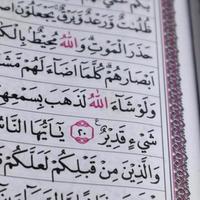 ظُلُمَٰتٌ وَرَعْدٌ وَبَرْقٌ يَجْعَلُونَ
حَذَرَ ٱلْمَوْتِ وَٱللَّهُ مُحِيطٌۢ بِٱلْكَ
أَبْصَٰرَهُمْ كُلَّمَآ أَضَآءَ لَهُم مَّشَ
وَلَوْ شَآءَ ٱللَّهُ لَذَهَبَ بِسَمْعِهِ
شَىْءٍ قَدِيرٌ ٢٠ يَٰٓأَيُّهَا ٱلنَّا
وَٱلَّذِينَ مِن قَبْلِكُمْ لَعَلَّكُمْ